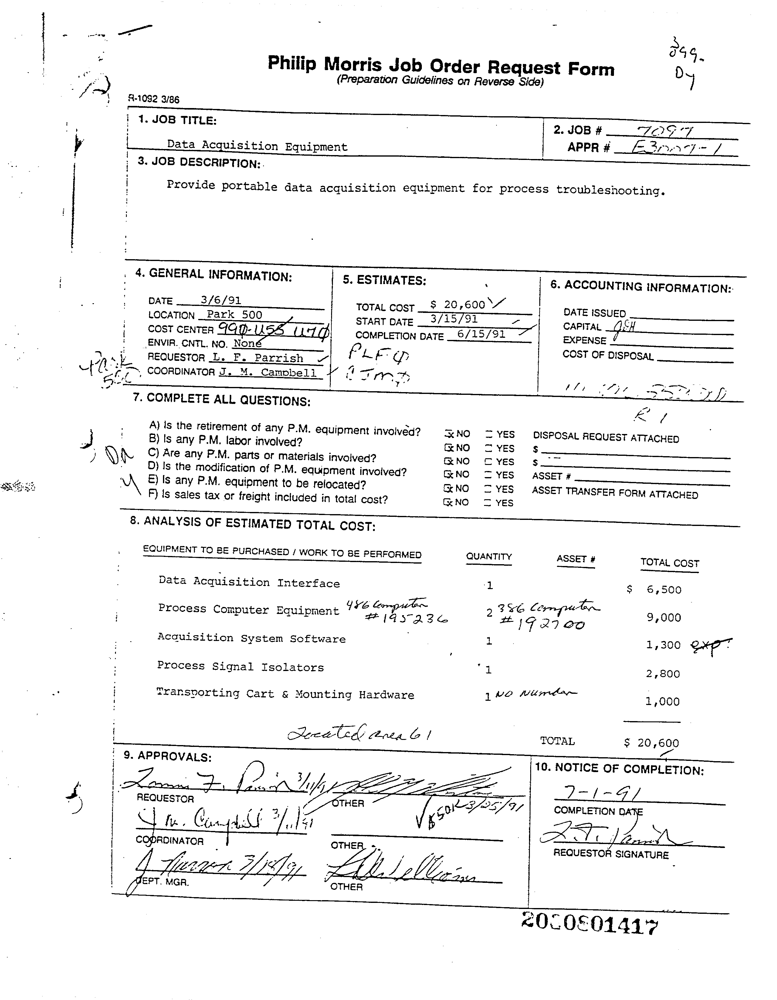 Philip Morris Job Order Request Form
(Preparation Guidelines on Reverse Side)
R-1092 3/86
1. JOB TITLE:
Data Acquisition Equipment
2. JOB # 7097
APPR #
3. JOB DESCRIPTION:
Provide portable data acquisition equipment for process troubleshooting.
4. GENERAL INFORMATION:
DATE 3/6/91
LOCATION Park 500
COST CENTER
ENVIR. CNTL. NO. None
REQUESTOR L. F. Parrish
COORDINATOR J. M. Campbell
5. ESTIMATES:
TOTAL COST $ 20,600
START DATE 3/15/91
COMPLETION DATE 6/15/91
6. ACCOUNTING INFORMATION:
DATE ISSUED
CAPITAL
EXPENSE
COST OF DISPOSAL
7. COMPLETE ALL QUESTIONS:
A) Is the retirement of any P.M. equipment involved? NO YES DISPOSAL REQUEST ATTACHED
B) Is any P.M. labor involved? NO YES $
C) Are any P.M. parts or materials involved? NO YES $
D) Is the modification of P.M. equipment involved? NO YES ASSET #
E) Is any P.M. equipment to be relocated? NO YES ASSET TRANSFER FORM ATTACHED
F) Is sales tax or freight included in total cost? NO YES
8. ANALYSIS OF ESTIMATED TOTAL COST:
EQUIPMENT TO BE PURCHASED / WORK TO BE PERFORMED QUANTITY ASSET # TOTAL COST
Data Acquisition Interface 1 $ 6,500
Process Computer Equipment 486 Computer #195236 2 386 Computer #192700 9,000
Acquisition System Software 1 1,300 exp.
Process Signal Isolators 1 2,800
Transporting Cart & Mounting Hardware 1 No Number 1,000
Located area 61
TOTAL $ 20,600
9. APPROVALS:
3/11/91
REQUESTOR
OTHER
3/25/91
J. M. Campbell 3/11/91
COORDINATOR
OTHER
DEPT. MGR.
OTHER
10. NOTICE OF COMPLETION:
7-1-91
COMPLETION DATE
REQUESTOR SIGNATURE
2030801417